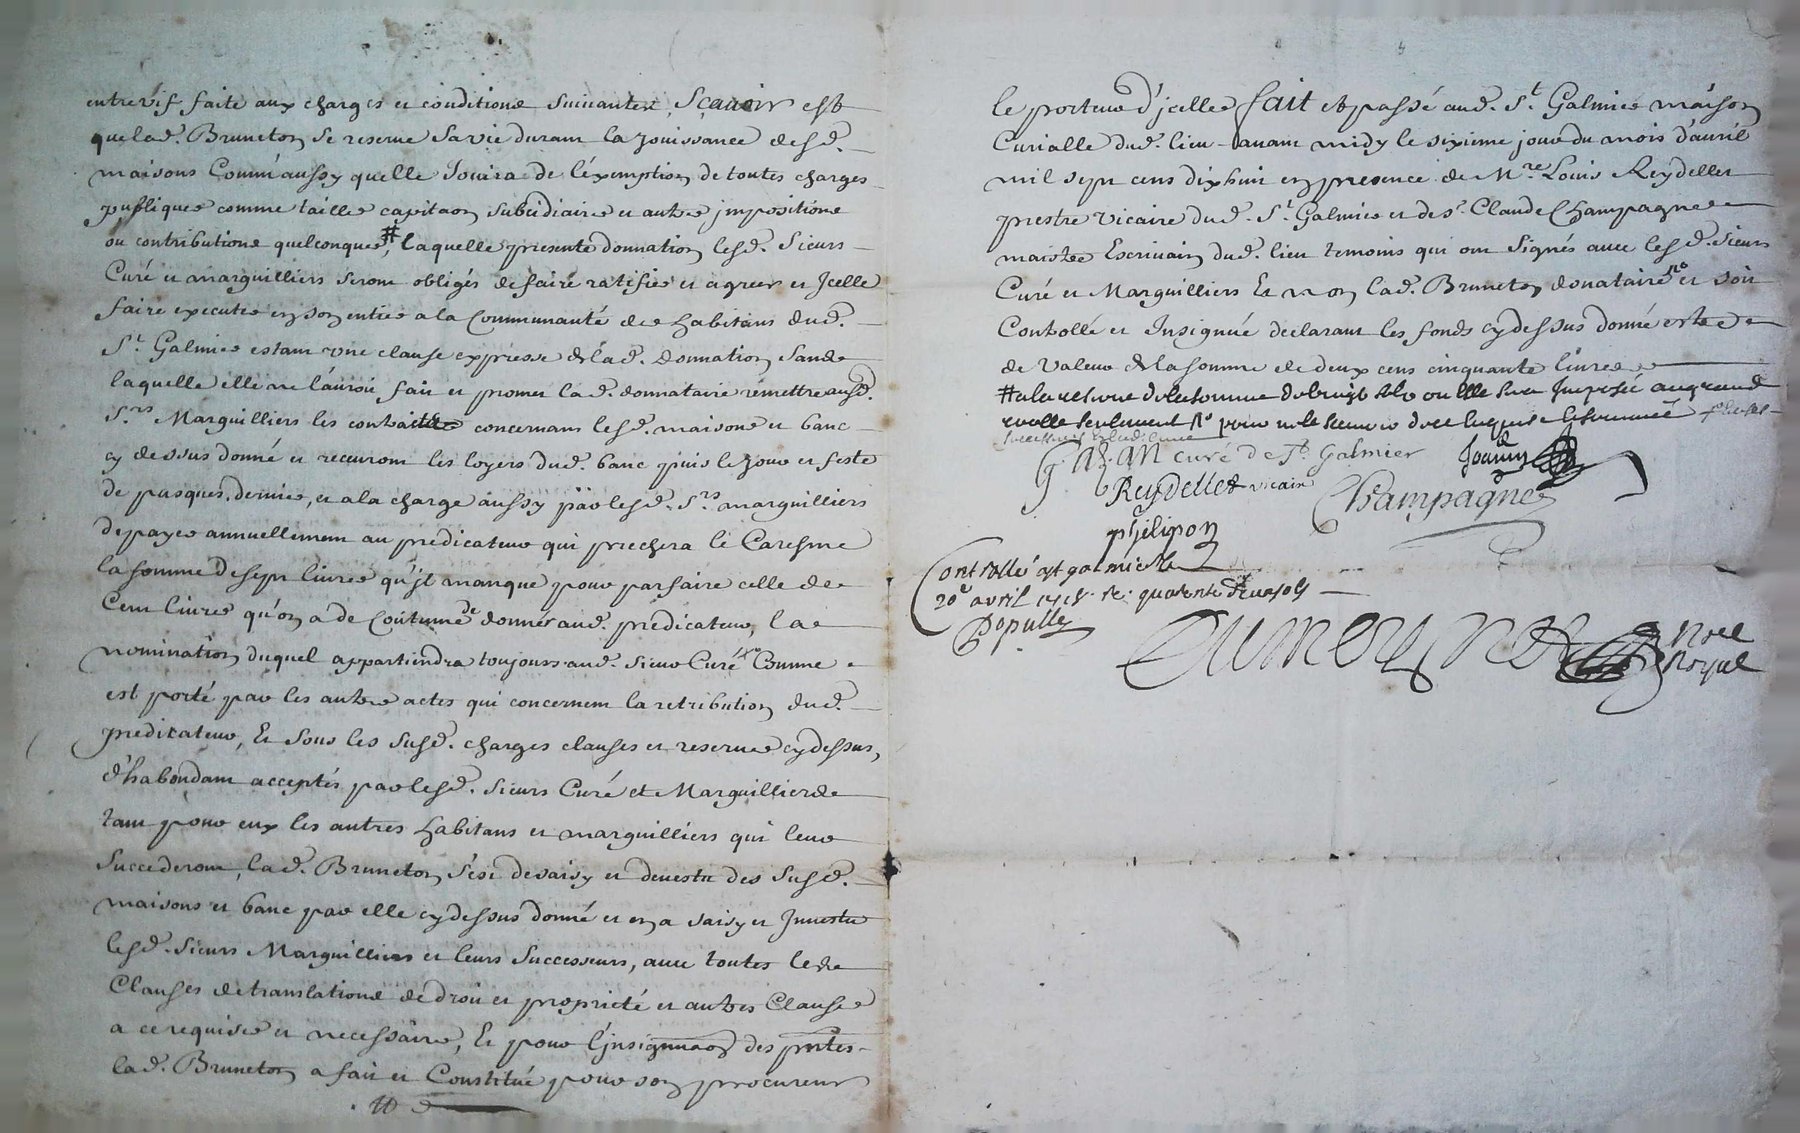 entrevif faite aux charges et conditions suivantes, Sçauoir est
que lad. Bruneton se reserue sa vie durant la Jouissance desd.
maisons Comm'aussy quelle Jouira de l'éxemption de toutes charges
publiques comme taille capitaon subsidiaire et autre jmpositions
ou contributions quelconques, # laquelle presente donnation lesd. Sieurs
Curé et marguilliers seront obligés de faire ratifier et agreer et Jcelle
faire executer en son entier a la Communauté des habitans dud.
St. Galmier estant vne clause expresse de lad. donnation sans
laquelle elle ne l'auroit fait et promet lad. donnataire remettre ausd.
Srs. Marguilliers les contracts concernant lesd. maisons et banc
cy dessus donné et receuront les loyers dud. banc puis le Jour et feste
de pasques dernier, et a la charge aussy par lesd. Srs. marguilliers
de payer annuellement au predicateur qui prechera le Caresme
la somme de sept liures qu'jl manque pour parfaire celle de
Cent liures qu'on a de Coutume de donner aud. prédicateur, la
nomination duquel appartiendra toujours aud. sieur Curé Comme
est porté par les autres actes qui concernent la retribution dud.
predicateur, Et sous les susd. charges clauses et reserues cydessus,
d'habondant acceptés par lesd. sieurs Curé et Marguilliers
tant pour eux les autres habitans et marguilliers qui leur
succederont, lad. Bruneton s'est desaisy et deuestu des susd.
maisons et banc par elle cydessus donné et en a saisy et Jnuestu
lesd. sieurs Marguilliers et leurs successeurs, auec toutes les
Clauses de translations de droit et propriété et autres Clauses
a ce requises et necessaire, Et pour l'jnsignuaon des pntes
lad. Bruneton a fait et Constitué pour son procureur
le porteur d'jcelles fait et passé aud. St. Galmier maison
Curialle dud. lieu auant midy le sixieme jour du mois d'auril
mil sept cens dixhuit en presence de Mre. Louis Reydellet
prestre vicaire dud. St. Galmier et de sr. Claude Champagne
maistre Escriuain dud. lieu temoins qui ont signés auec lesd. sieurs
Curé et Marguilliers Et non lad. Bruneton donataire et soit
Contollé et Insignué declarant les fonds cydessus donné estre
de valeur de la somme de deux cens cinquante liures
# a la reserue de la somme de vingt sols ou elle sera Imposée
seulement
curé de St. Galmier Joanin
Reydellet vicaire Champagne
phelipon
Controllé a st galmier le
20e auril 1718. re. quarente deux sols
Populle
Dumeynet Nore Royal